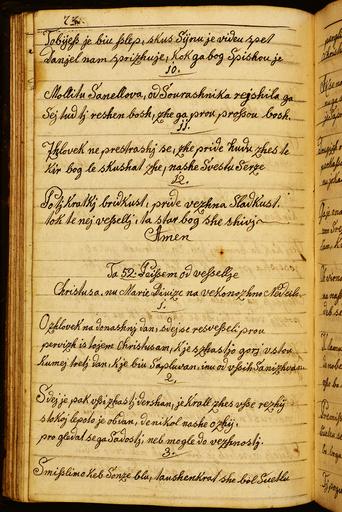 73.
Tobijesh je biu shlep, skus Sijnu je videu spet
Danjel nam sprizhuje, Kok ga bog Spiskou je
10.
Mollitu Sanellova, od Sourashnika rejshila ga
Sej tud tj reshen bosh, zhe ga prou prossou bosh.
11.
Zhlovek ne prestrashj se, zhe pride hudizh zhes te
Kir bog le skushat zhe, nashe Svestu Serze
12.
Po tj kratkj bridkust, pride vezhna Sladkust
tok te nej vesselj, ta star bog she shivj
Amen
Ta 52. Peissem od vesselja
Christusa, nu Marie Divize na vekonozhno Nedeilo
1.
O zhlovek na donashnj dan, sdej se resveseli prou
pervizh is tojem Christusam, K je s shastjo gorj vstou
Kumej tretj dan, K je biu Sapluvan, inu od vsseh Sanizhvan
2.
Sdej je pak vssi zhastj dershan, je Krall zhes vsse rezhij
stokoj lepoto je obdan, de nikol nashe ozhij,
pro gledat se ga Sadostj, neb mogle do vezhnostj
3.
Smisslimo Keb Sonze blu, taushenkrat she bol Suetlu